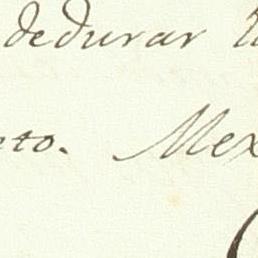 dedurar
eto. Mex